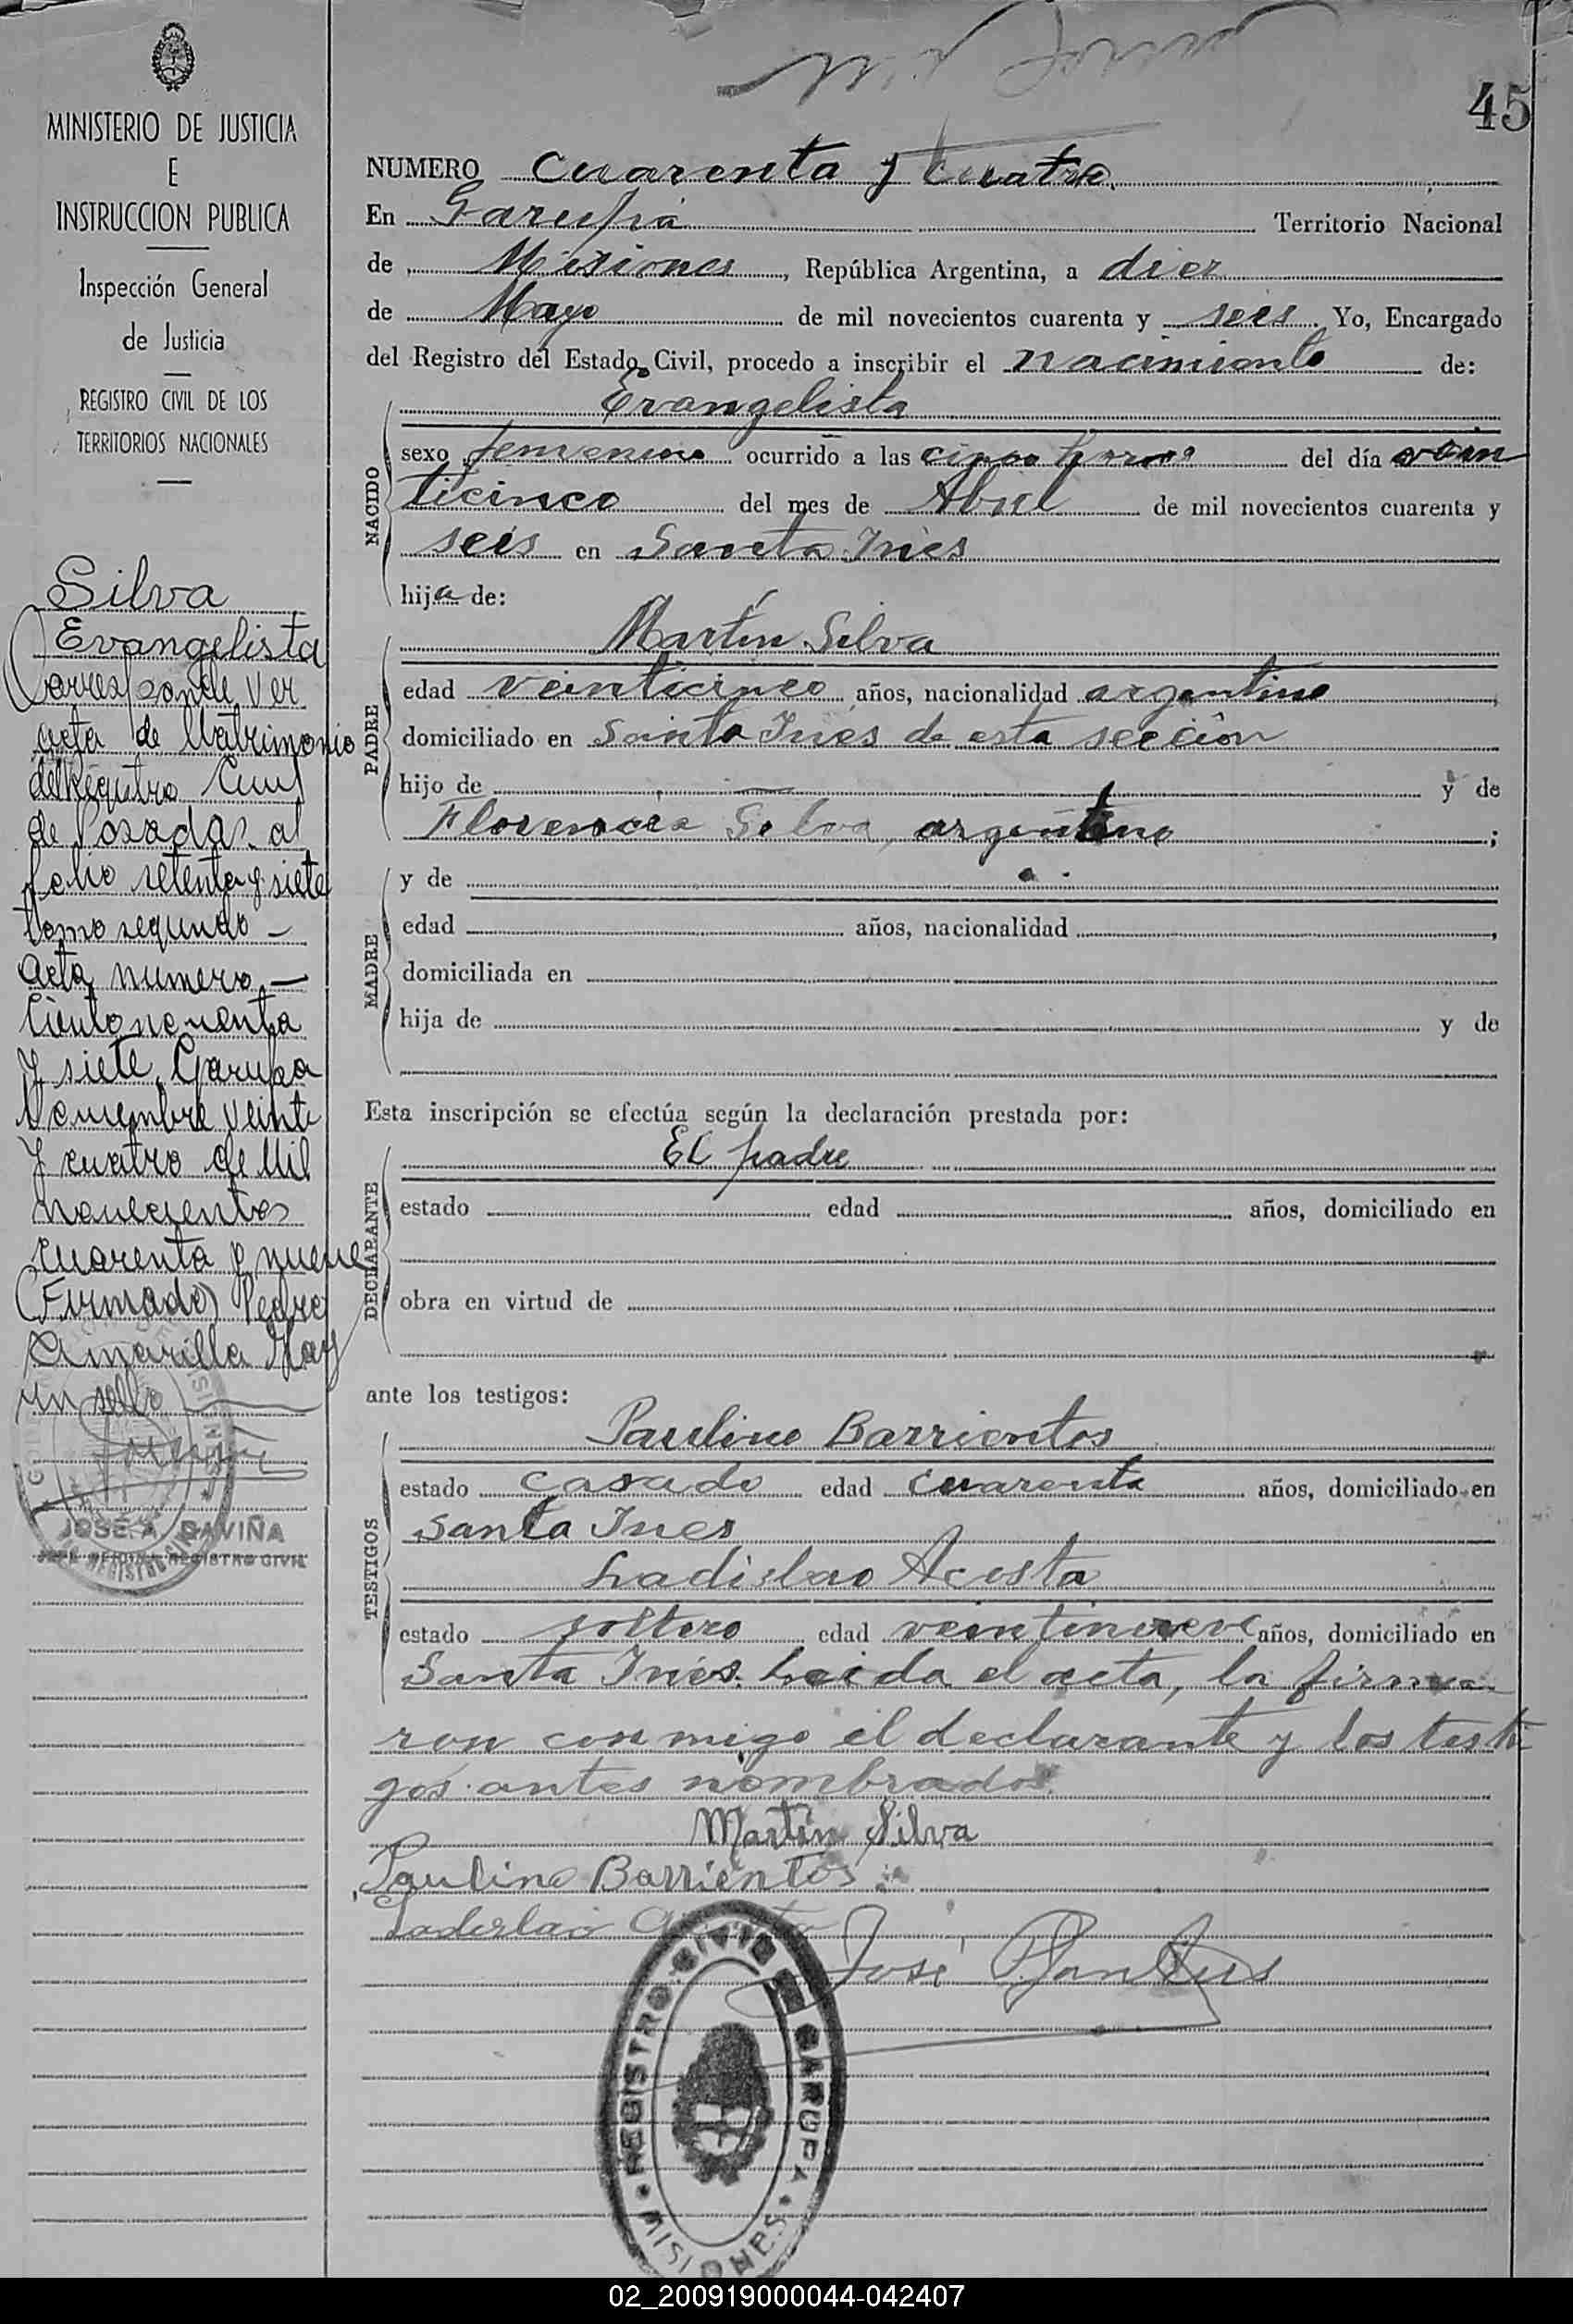 45
MINISTERIO DE JUSTICIA
E
INSTRUCCION PUBLICA
Inspección General
de Justicia
REGISTRO CIVIL DE LOS
TERRITORIOS NACIONALES
Silva
Evangelista
Corresponde ver
acta de Matrimonio
del Registro Civil
de Posadas al
folio setenta y siete
tomo segundo -
acta numero -
Ciento noventa
y siete, Garupa
Noviembre veinte
y cuatro de Mil
novecientos
cuarenta y nueve
(Firmado) Pedro
Amarilla Hay
un sello
JOSÉ A. GAVIÑA
JEFE OFICINA REGISTRO CIVIL
NUMERO cuarenta y cuatro.
En Garupá Territorio Nacional
de Misiones, República Argentina, a diez
de Mayo de mil novecientos cuarenta y seis. Yo, Encargado
del Registro del Estado Civil, procedo a inscribir el nacimiento de:
NACIDO
Evangelista
sexo femenino ocurrido a las cinco horas del día vein
ticinco del mes de Abril de mil novecientos cuarenta y
seis en Santa Inés
hija de:
PADRE
Martín Silva
edad veinticinco años, nacionalidad argentino
domiciliado en Santa Inés de esta sección
hijo de y de
Florencia Silva, argentina;
MADRE
y de
edad años, nacionalidad,
domiciliada en
hija de y de
Esta inscripción se efectúa según la declaración prestada por:
DECLARANTE
El padre
estado edad años, domiciliado en
obra en virtud de
ante los testigos:
TESTIGOS
Paulino Barrientos
estado casado edad cuarenta años, domiciliado en
Santa Ines
Ladislao Acosta
estado soltero edad veintinueve años, domiciliado en
Santa Inés. Leida el acta, la firma
ron conmigo el declarante y los testi
gos antes nombrados.
Martín Silva
Paulino Barrientos
Ladislao
José
REGISTRO CIVIL DE GARUPA
MISIONES
02_200919000044-042407